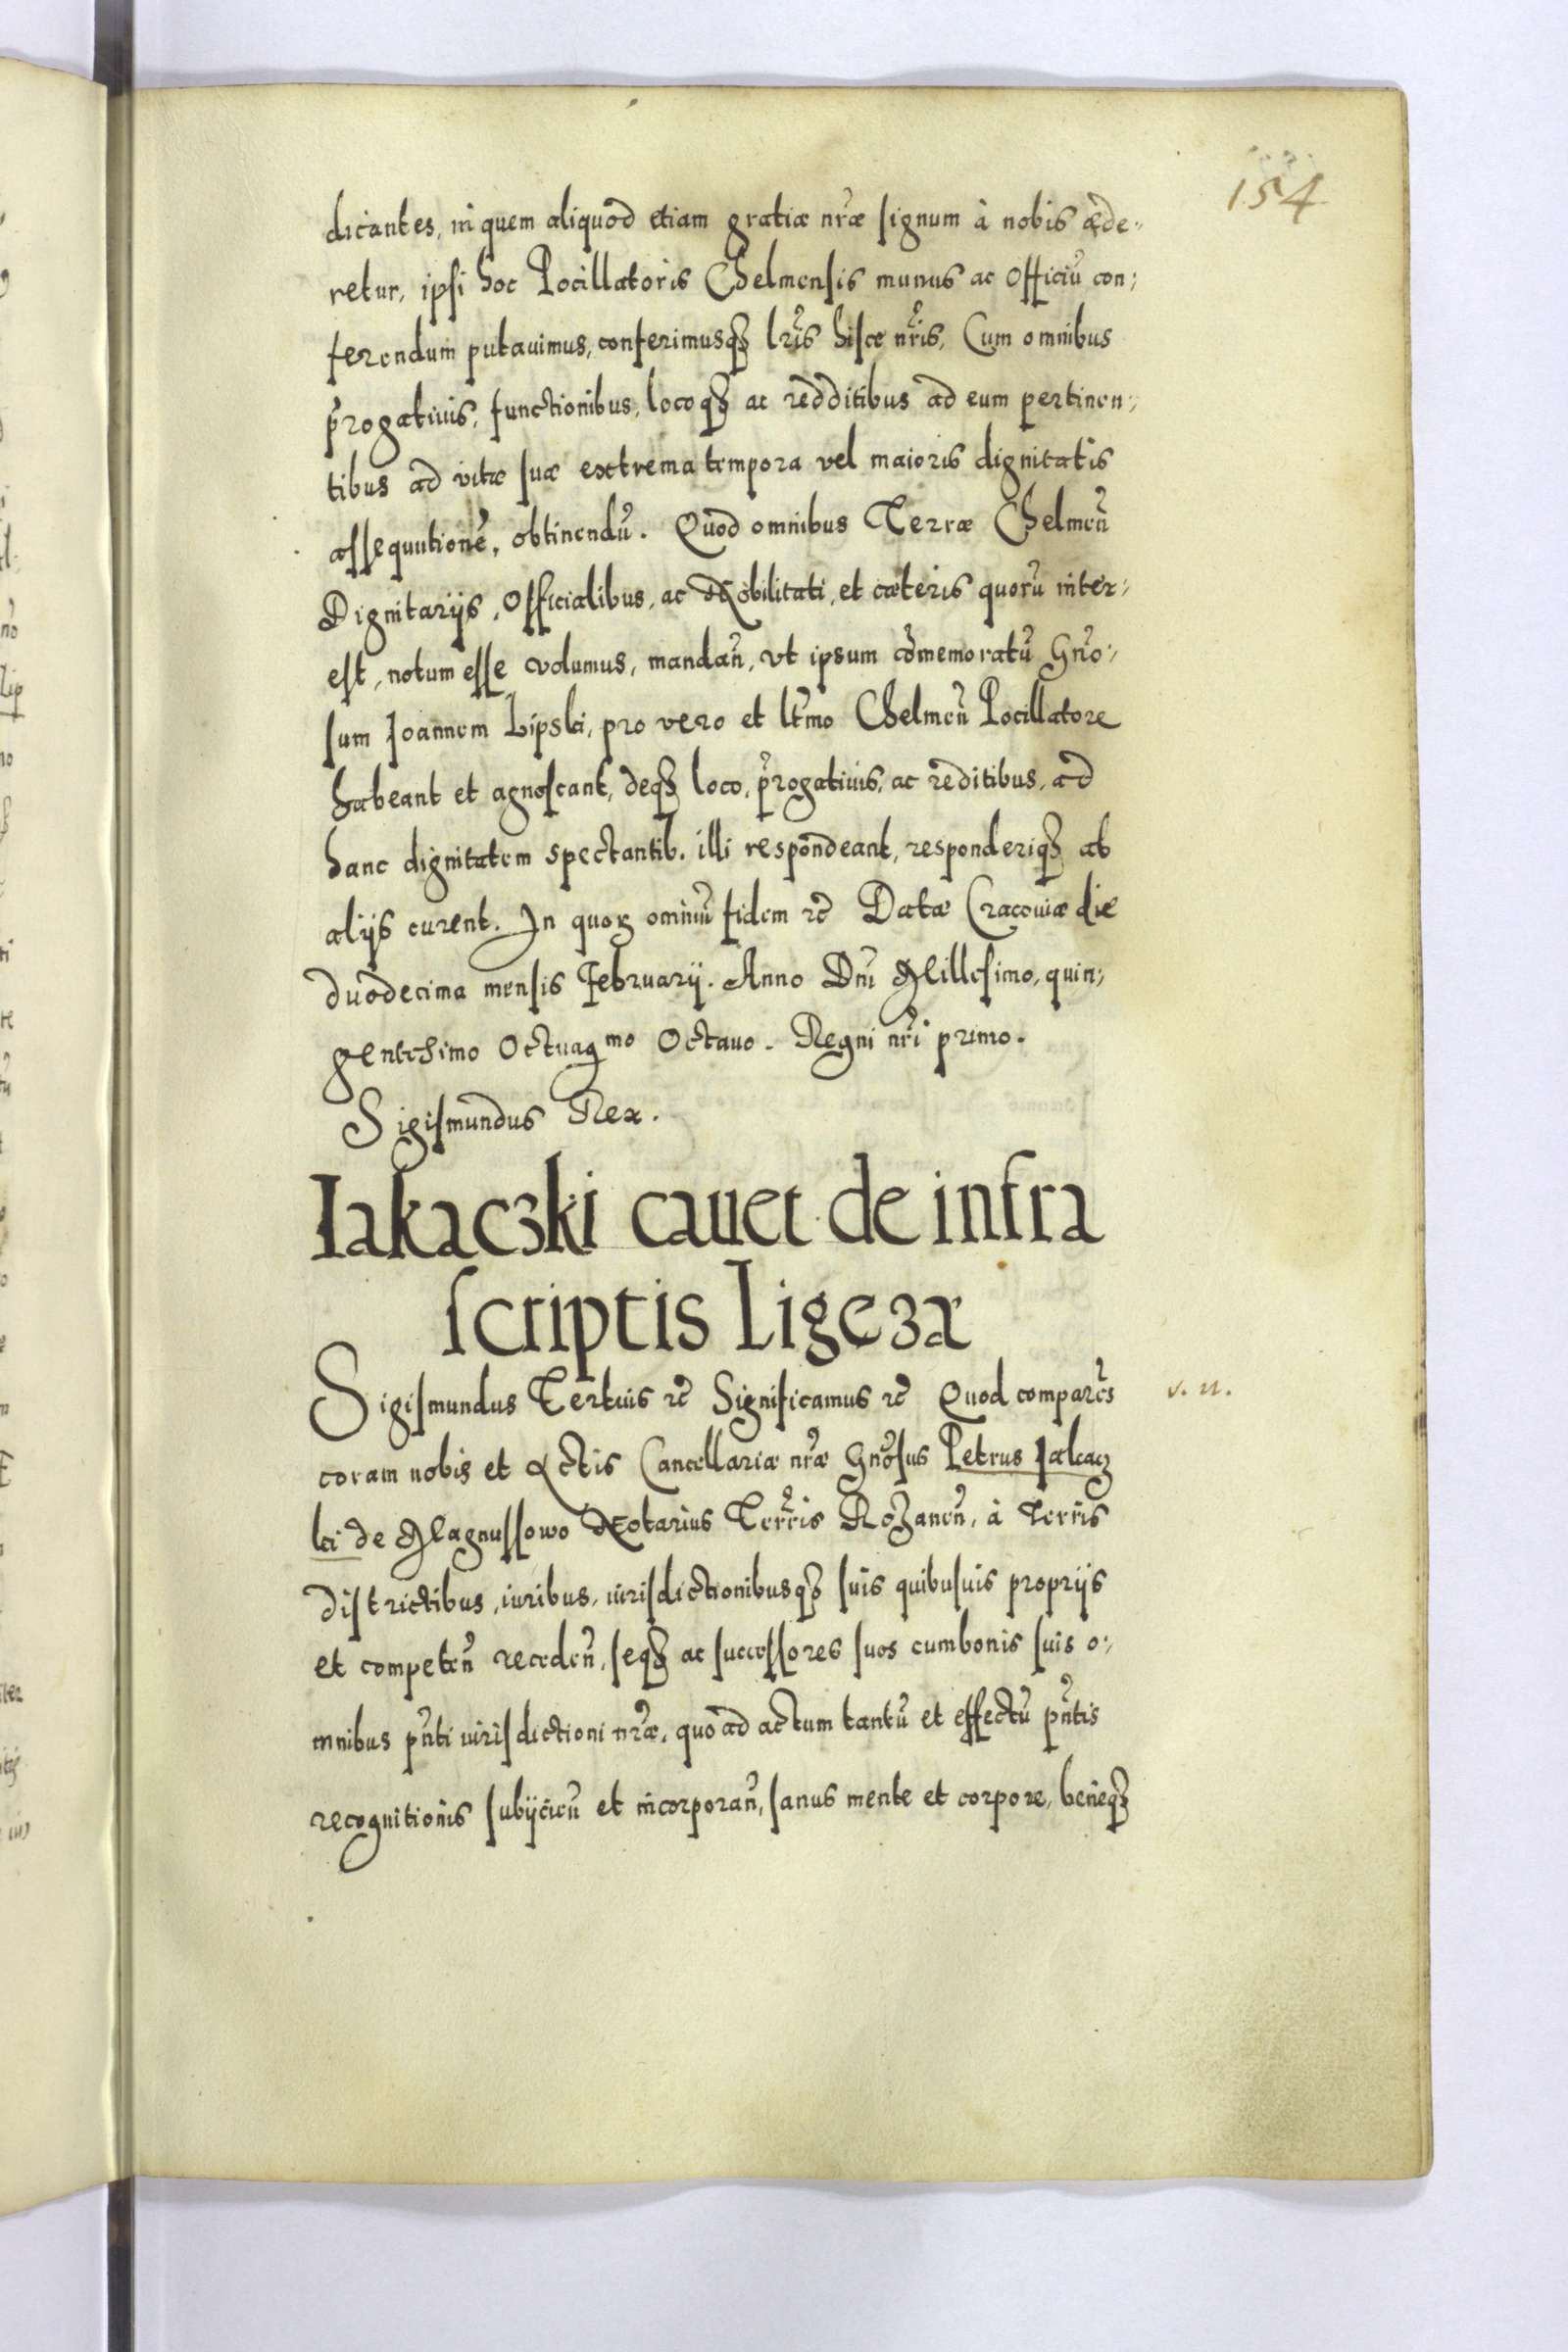 154
dicantes, in quem aliquod etiam gratiæ nr̃æ signum à nobis æde-
retur, ipsi hoc Pocillatoris Chelmensis munus ac Officiũ con-
ferendum putauimus, conferimusq̃ lr̃is hisce nr̃is, Cum omnibus
p̃rogatiuis, functionibus, locoq̃ ac redditibus ad eum pertinen-
tibus ad vitæ suæ extrema tempora vel maioris dignitatis
assequutionẽ, obtinendũ. Quod omnibus Terræ Chelmeñ
Dignitarijs, Officialibus, ac Nobilitati, et cæteris quorũ inter-
est, notum esse volumus, mandañ, vt ipsum cõmemoratũ Gñro-
sum Joannem Lipski, pro vero et lt̃imo Chelmeñ Pocillatore
habeant et agnoscant, deq̃ loco, p̃rogatiuis, ac reditibus, ad
hanc dignitatem spectantib. illi respondeant, responderiq̃ ab
alijs curent. In quoꝝ omniũ fidem ꝛc̃ Datæ Cracouiæ die
duodecima mensis Februarij. Anno Dñi Millesimo, quin-
gentesimo Octuagmo Octauo. Regni nr̃i primo.
Sigismundus Rex.
Iakaczki cauet de infra
scriptis Ligezæ
Sigismundus Tertius ꝛc̃ Significamus ꝛc̃ Quod comparẽs
v. n.
coram nobis et Actis Cancellariæ nr̃æ Gñosus Petrus Jakacz
ki de Magnussowo Notarius Terr̃is Rozaneñ, à Terris
districtibus, iuribus, iurisdictionibusq̃ suis quibusuis proprijs
et competeñ recedeñ, seq̃ ac successores suos cum bonis suis o-
mnibus pñti iurisdictioni nr̃æ, quo ad actum tantũ et effectũ pñtis
recognitionis subijcieñ et incorporañ, sanus mente et corpore, beneq̃